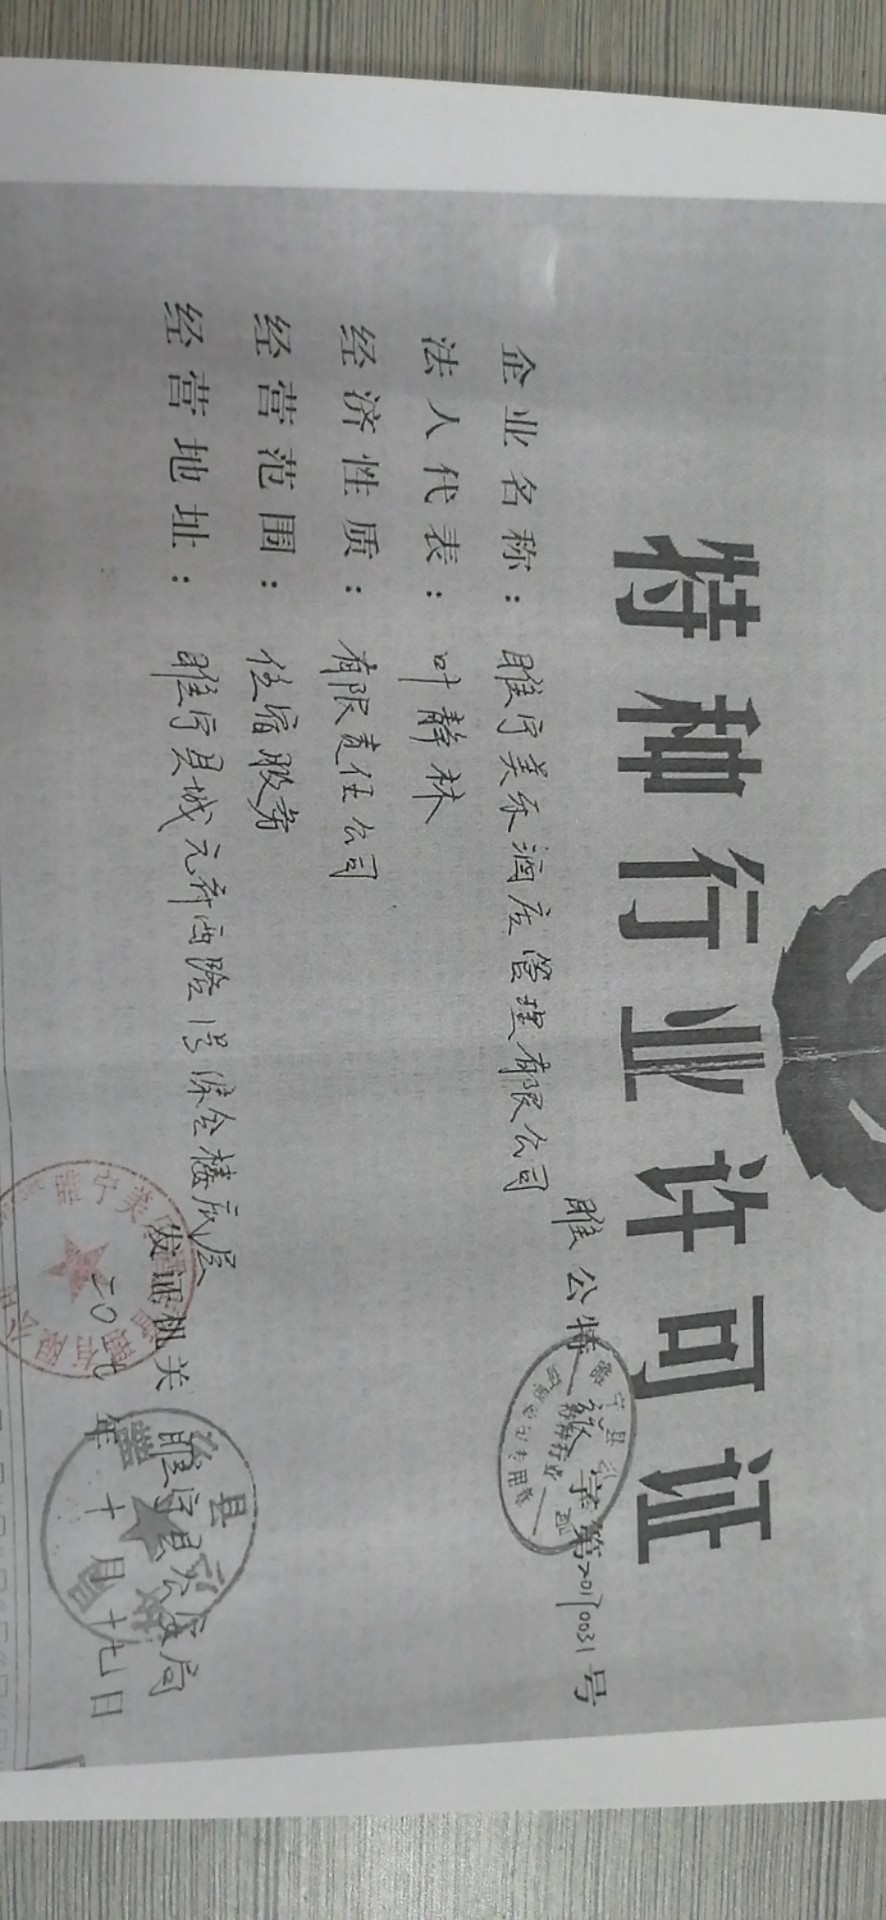 特种行业许可证
睢公特 字第20170031号
企业名称：睢宁美乐酒店管理有限公司
法人代表：叶静林
经济性质：有限责任公司
经营范围：住宿服务
经营地址：睢宁县城元府西路1号综合楼底层
发证机关 睢宁县公安局
二〇一七年十月十七日